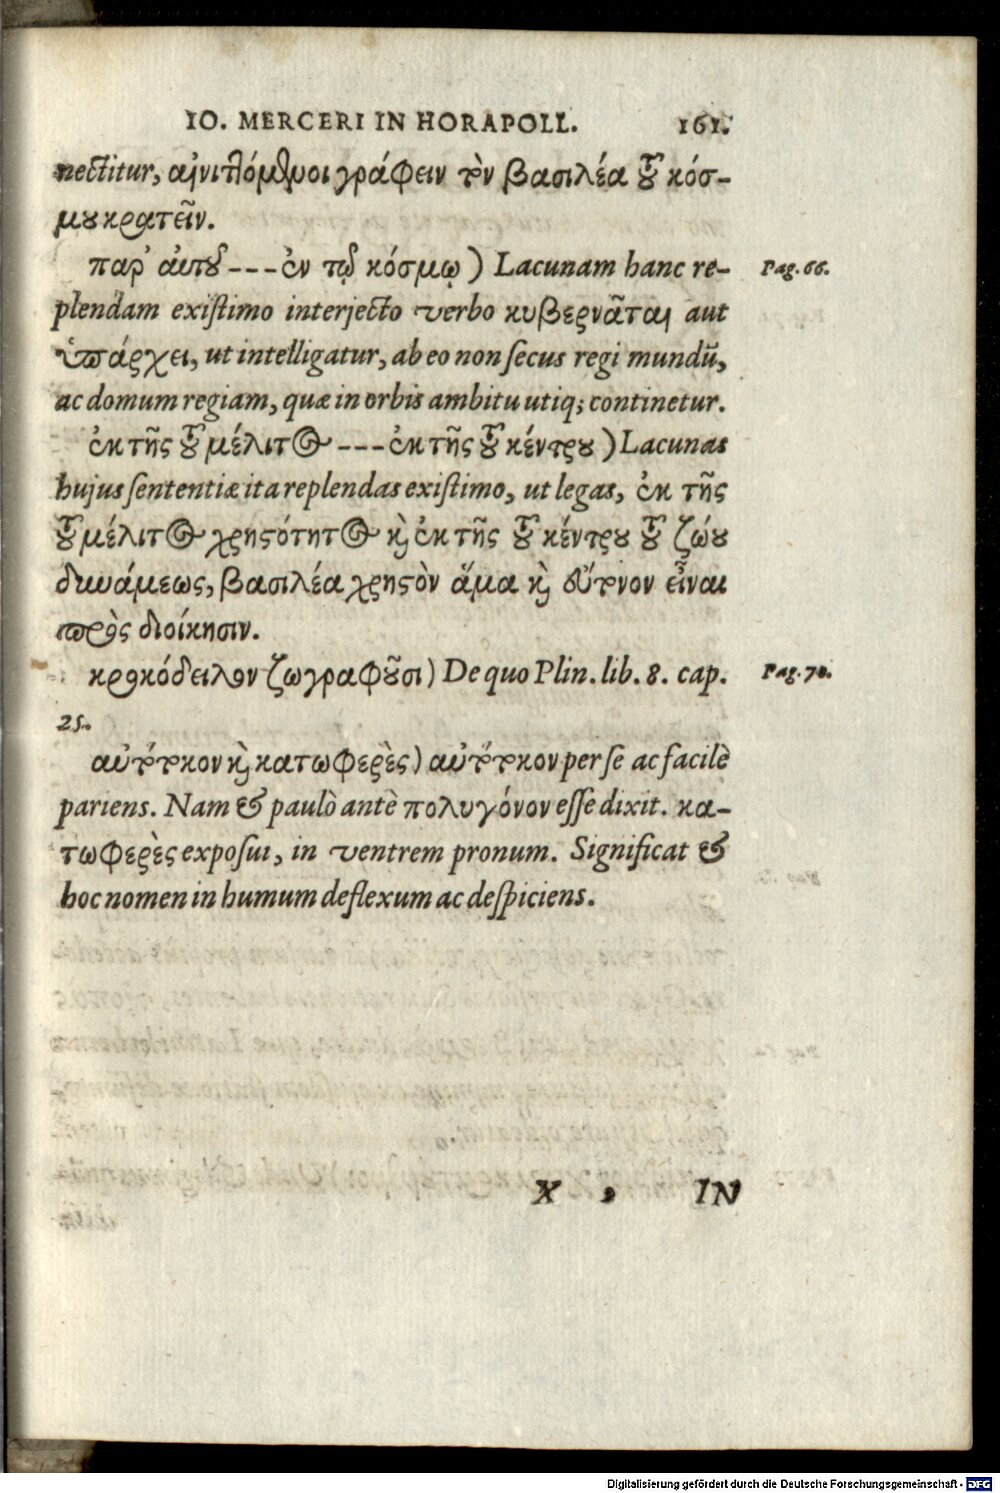 IO. MERCERI IN HORAPOLL. 161.
nectitur, αἰνιττόμενοι γράφειν τὸν βασιλέα τοῦ κόσ-
μου κρατεῖν.
παρ' αὐτοῦ --- ἐν τῷ κόσμῳ) Lacunam hanc re- Pag. 66.
plendam existimo interjecto verbo κυβερνᾶται aut
ὑπάρχει, ut intelligatur, ab eo non secus regi mundũ,
ac domum regiam, quæ in orbis ambitu utiq; continetur.
ἐκ τῆς τοῦ μέλιτος --- ἐκ τῆς τοῦ κέντρου) Lacunas
hujus sententiæ ita replendas existimo, ut legas, ἐκ τῆς
τοῦ μέλιτος χρηστότητος καὶ ἐκ τῆς τοῦ κέντρου τοῦ ζώου
δυνάμεως, βασιλέα χρηστὸν ἅμα καὶ εὔτονον εἶναι
πρὸς διοίκησιν.
κροκόδειλον ζωγραφοῦσι) De quo Plin. lib. 8. cap. Pag. 70.
25.
αὐτότοκον καὶ κατωφερὲς) αὐτότοκον per se ac facilè
pariens. Nam & paulò antè πολυγόνον esse dixit. κα-
τωφερὲς exposui, in ventrem pronum. Significat &
hoc nomen in humum deflexum ac despiciens.
X , IN
Digitalisierung gefördert durch die Deutsche Forschungsgemeinschaft - DFG